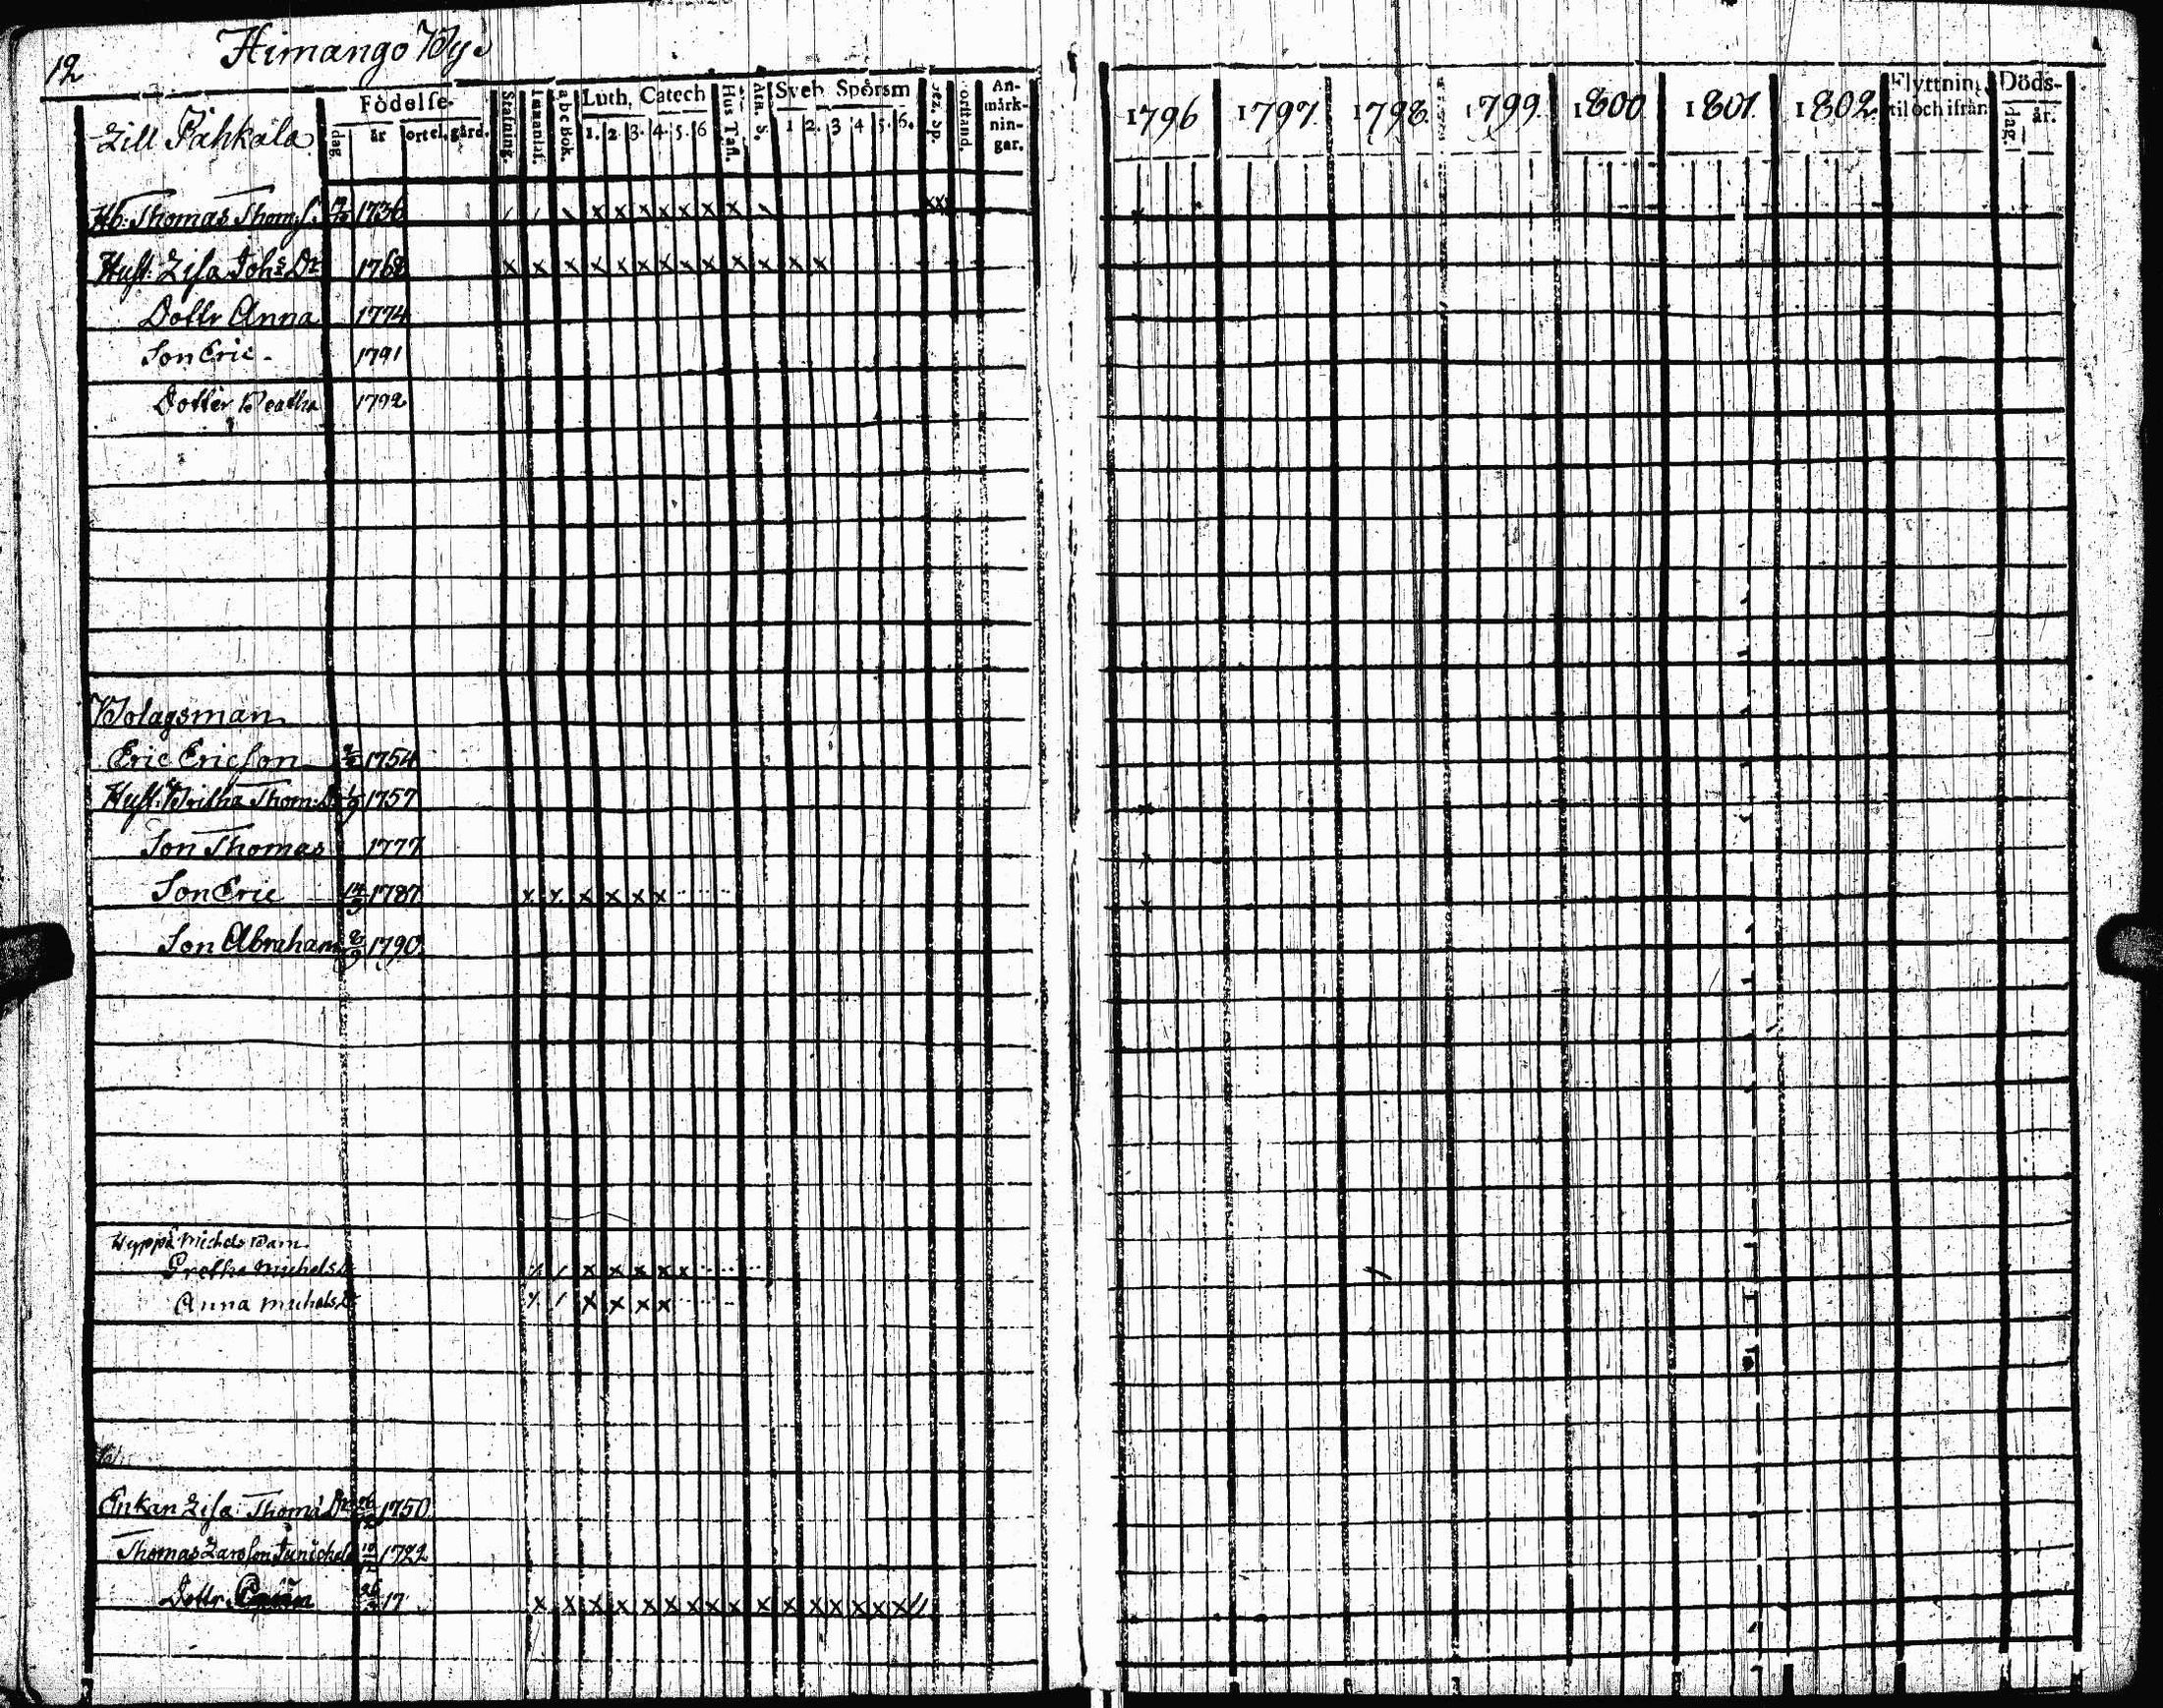 12
Himango By
Lill Pahkala
Födelse-
dag.
år
ort el. gård.
Stafning.
a b c Bok.
Luth. Catech
1. 2. 3. 4. 5. 6
Hus Tafl.
Ath. S.
Sveb. Spörsm
1 2. 3 4 5. 6.
An-
märk-
nin-
gar.
1796 1797 1798 1799 1800 1801 1802
Flyttning
til och ifrån
Döds-
dag.
år.
Hb. Thomas Thom:s. 1736
Hust: Lisa Johs Dr 1768
Dottr Anna 1774
Son Eric 1791
Dotter Beatha 1792
Bolagsman
Eric Ericson 1754
Hust: Britha Thom: Dr 1757
Son Thomas 1777
Son Eric 1787
Son Abraham 1790
Michels Barn
Gretha Michels Dr
Anna Michels Dr
Enkan Lisa Thoma Dr 1750
Thomas Larsson 10/12 1722
Dottr 17